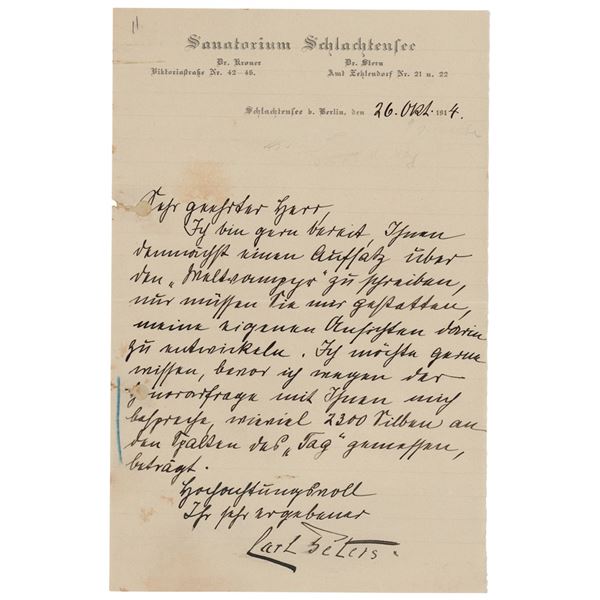 Sanatorium Schlachtensee
Dr. Kroner Dr. Stern
Viktoriastraße Nr. 42—46. Amt Zehlendorf Nr. 21 u. 22
Schlachtensee b. Berlin, den 26. Okt. 1914.
Sehr geehrter Herr,
Ich bin gern bereit, Ihnen
demnächst einen Aufsatz über
den „Weltvampyr" zu schreiben,
nur müssen Sie mir gestatten,
meine eigenen Ansichten darin
zu entwickeln. Ich möchte gerne
wissen, bevor ich wegen der
Honorarfrage mit Ihnen mich
bespreche, wieviel 2300 Silben an
den Spalten des „Tag" gemessen,
beträgt.
Hochachtungsvoll
Ihr sehr ergebener
Carl Peters.